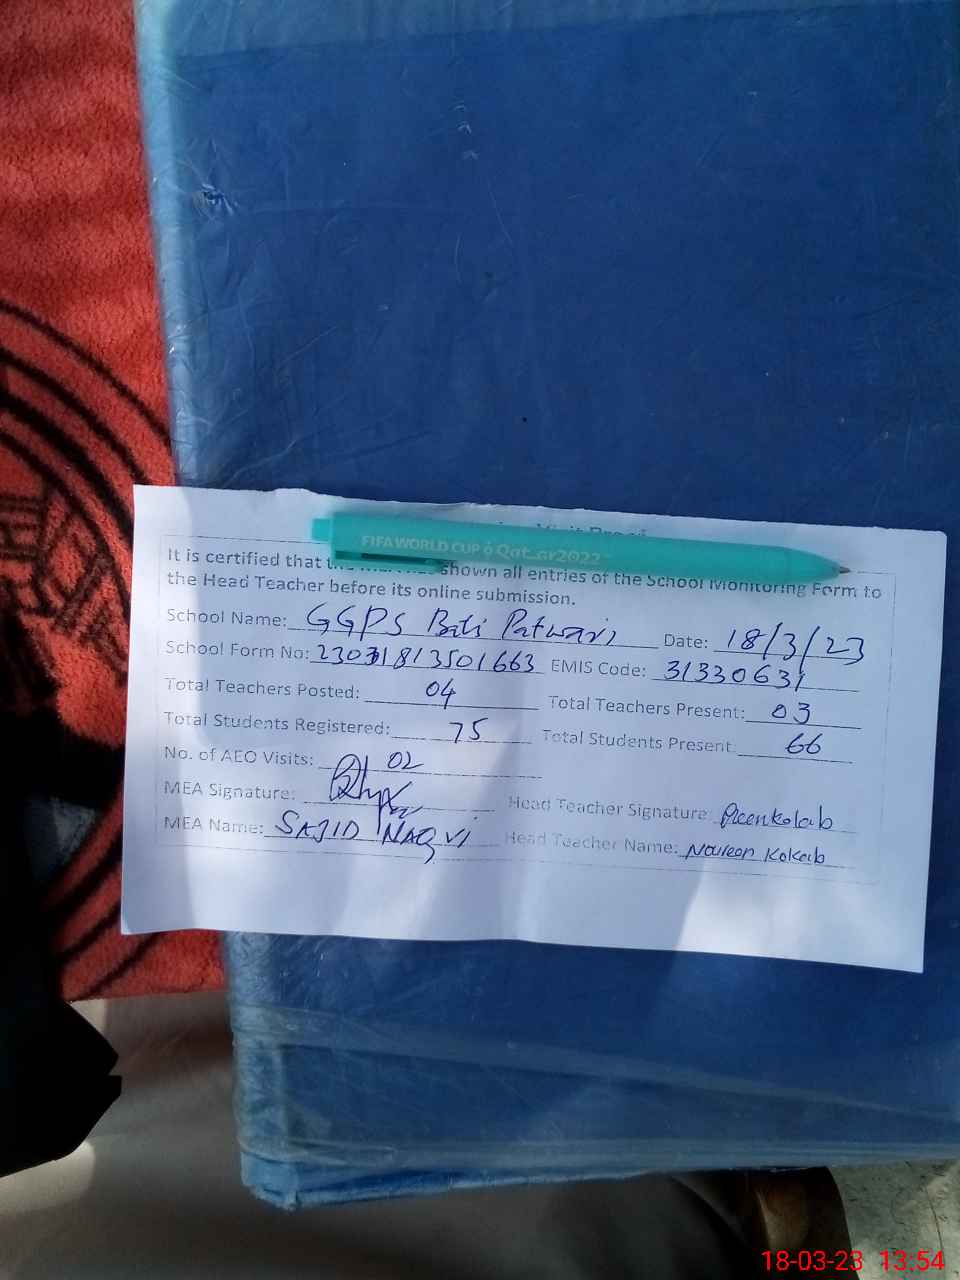 FIFA WORLD CUP Qatar2022
It is certified that shown all entries of the School Monitoring Form to
the Head Teacher before its online submission.
School Name: GGPS Bati Patwari Date: 18/3/23
School Form No: 23031813501663 EMIS Code: 31330631
Total Teachers Posted: 04 Total Teachers Present: 03
Total Students Registered: 75 Total Students Present: 66
No. of AEO Visits: 02
MEA Signature: Head Teacher Signature:
MEA Name: SAJID NAQVI Head Teacher Name: Noureen Kokab
18-03-23 13:54